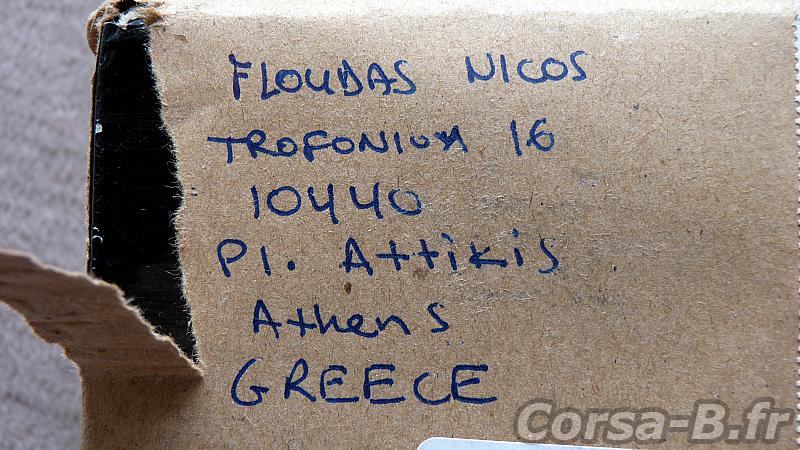 FLOUDAS NICOS
TROFONIOY 16
10440
Pl. Attikis
Athens
GREECE
Corsa-B.fr